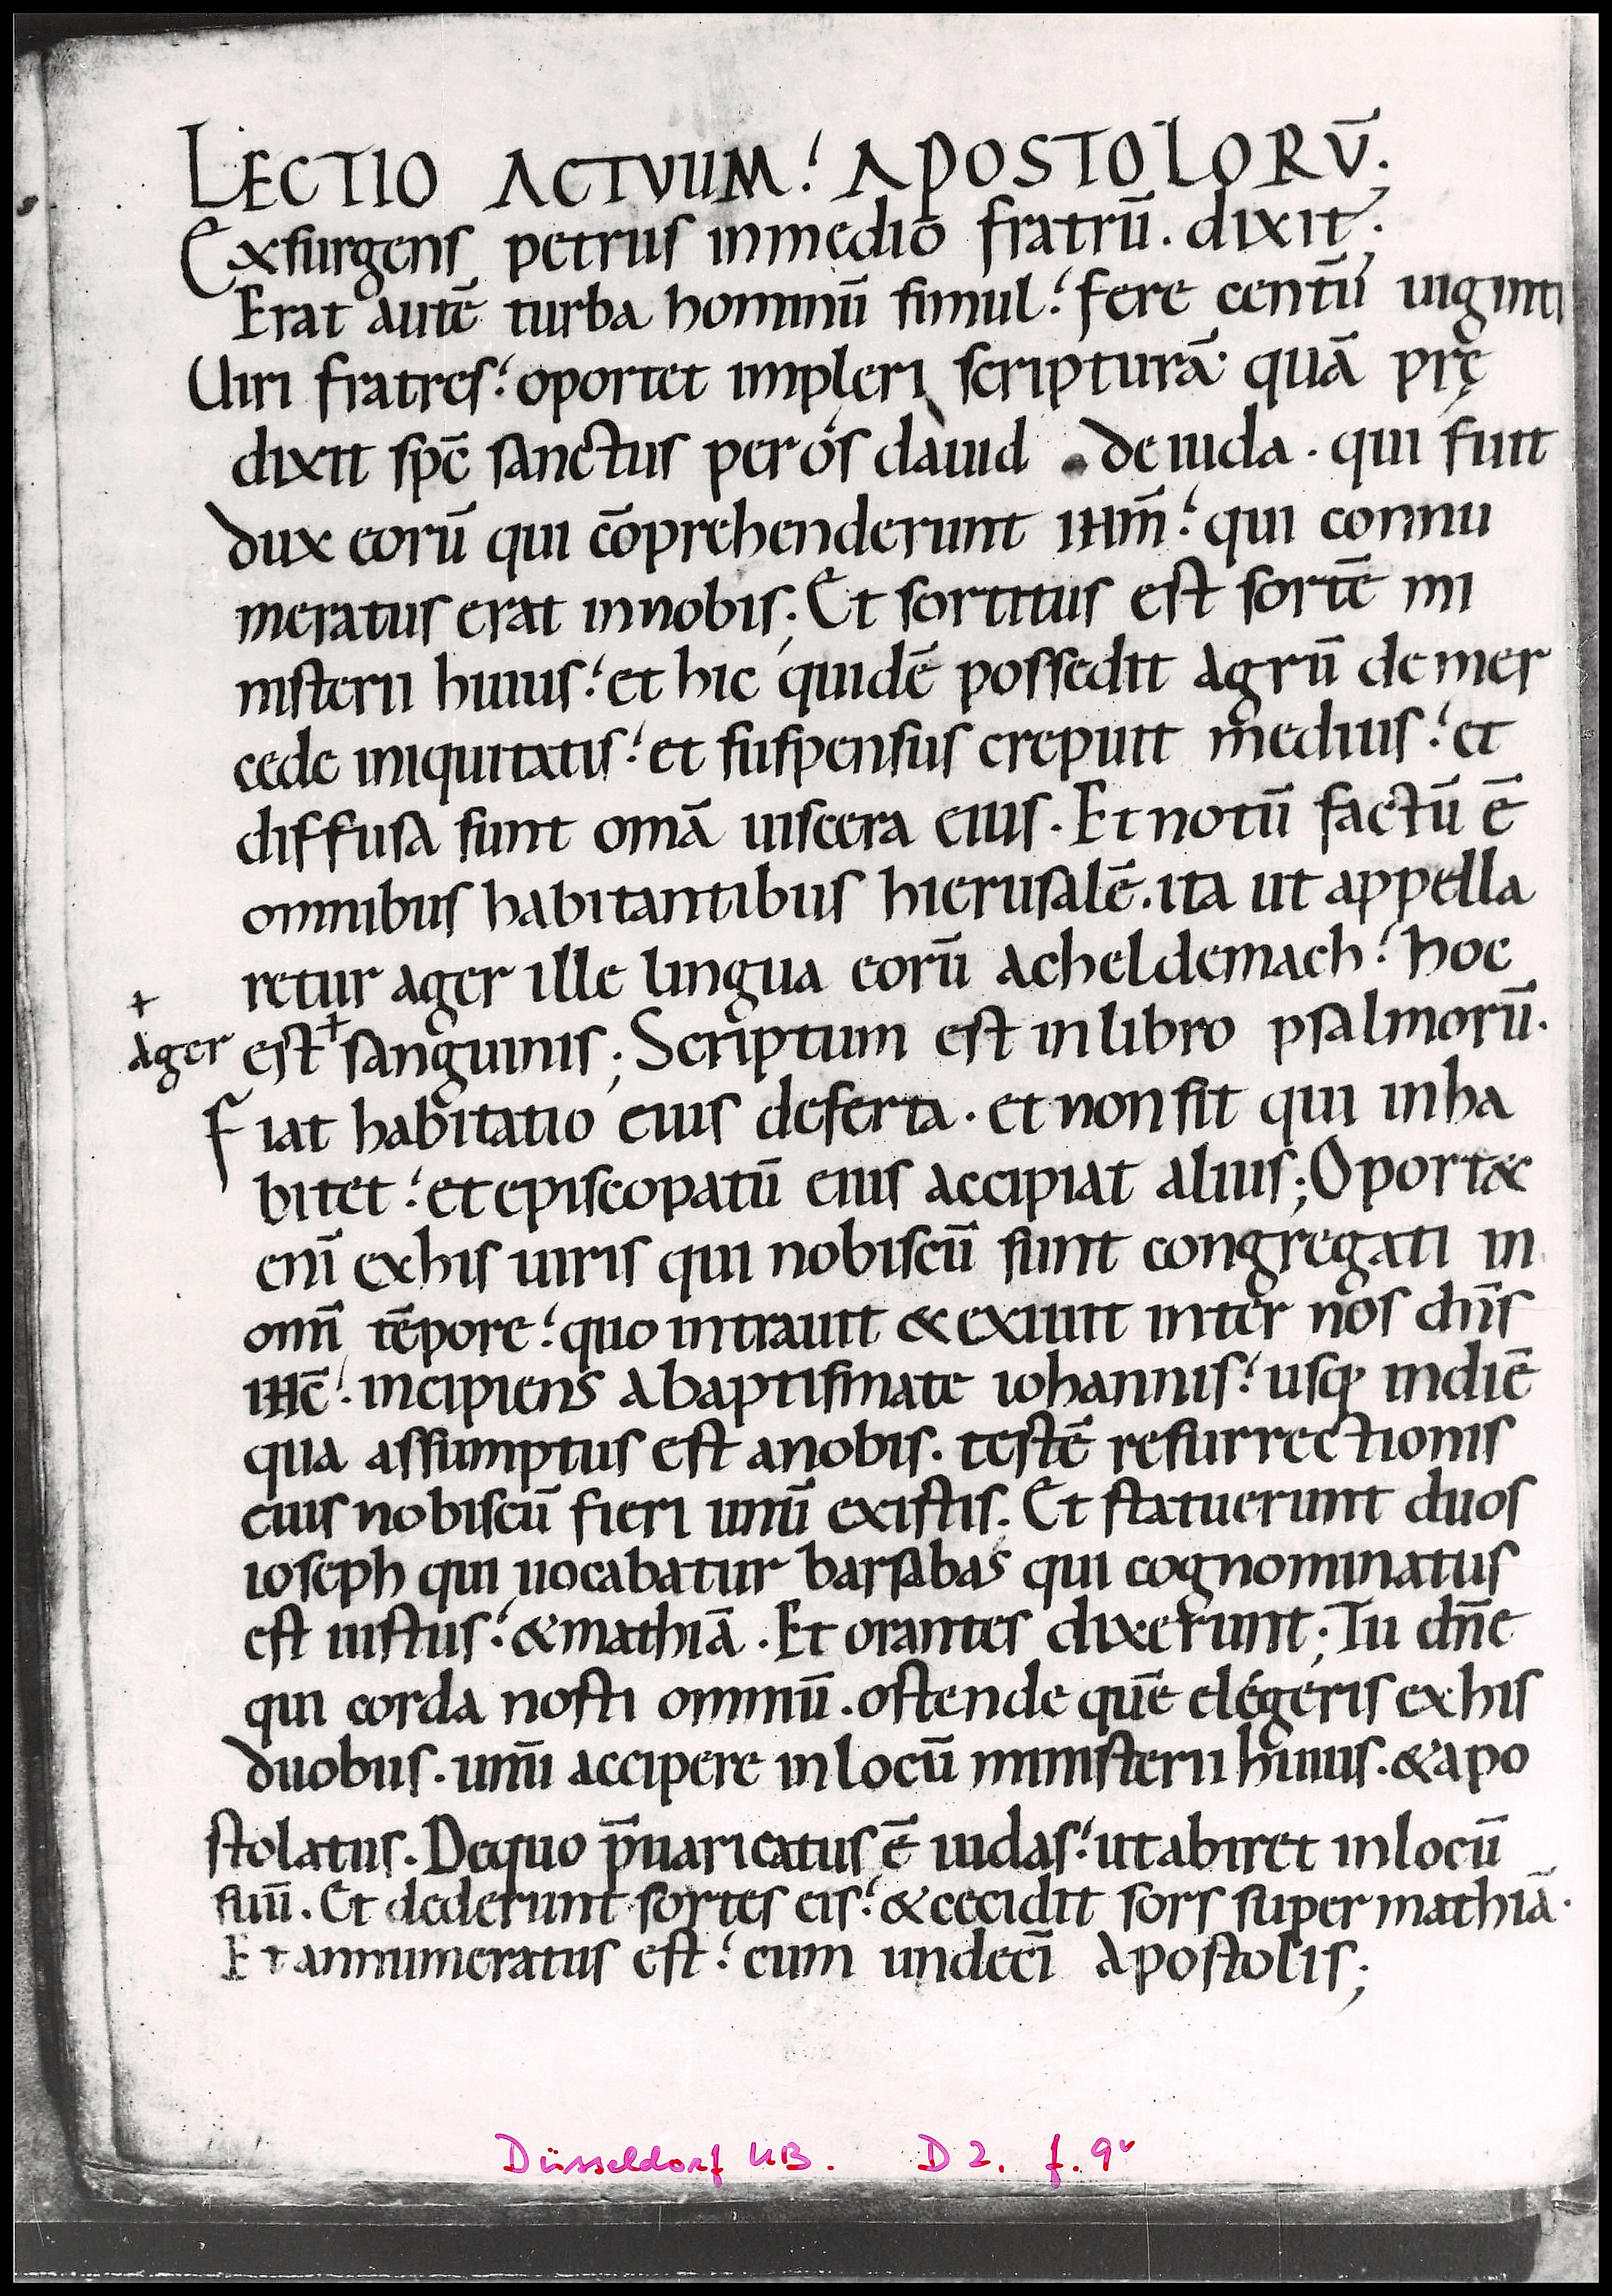 LECTIO ACTVUM: APOSTOLORŪ.
Exsurgens petrus inmedio fratrū. dixit;
Erat autē turba hominū simul: fere centū uiginti
Uiri fratres: oportet impleri scripturā quā prę
dixit spc̄ sanctus per os dauid de iuda. qui fuit
dux eorū qui cōprehenderunt IHm̄: qui connu
meratus erat innobis; Et sortitus est sortē mi
nisterii huius: et hic quidē possedit agrū de mer
cede iniquitatis: et suspensus crepuit medius: et
diffusa sunt omā uiscera eius. Et notū factū ē
omnibus habitantibus hierusalē. ita ut appella
retur ager ille lingua eorū acheldemach: hoc
+
ager est + sanguinis; Scriptum est inlibro psalmorū.
Fiat habitatio eius deserta. et non sit qui inha
bitet: et episcopatū eius accipiat alius; Oport&
enī exhis uiris qui nobiscū sunt congregati in
omī tēpore: quo intrauit & exiuit inter nos dn̄s
IHC̄: incipiens abaptismate iohannis: usq; indiē
qua assumptus est anobis. testē resurrectionis
eius nobiscū fieri unū existis. Et statuerunt duos
ioseph qui uocabatur barsabas qui cognominatus
est iustus: & mathiā. Et orantes dixerunt; Tu dn̄e
qui corda nosti omniū. ostende quē elégeris exhis
duobus. unū accipere inlocū ministerii huius. & apo
stolatus. Dequo p̄uaricatus ē iudas: ut abiret inlocū
suū. Et dederunt sortes eis: & cecidit sors super mathiā.
Et annumeratus est: cum undecī apostolis;
Düsseldorf UB. D 2. f. 9v